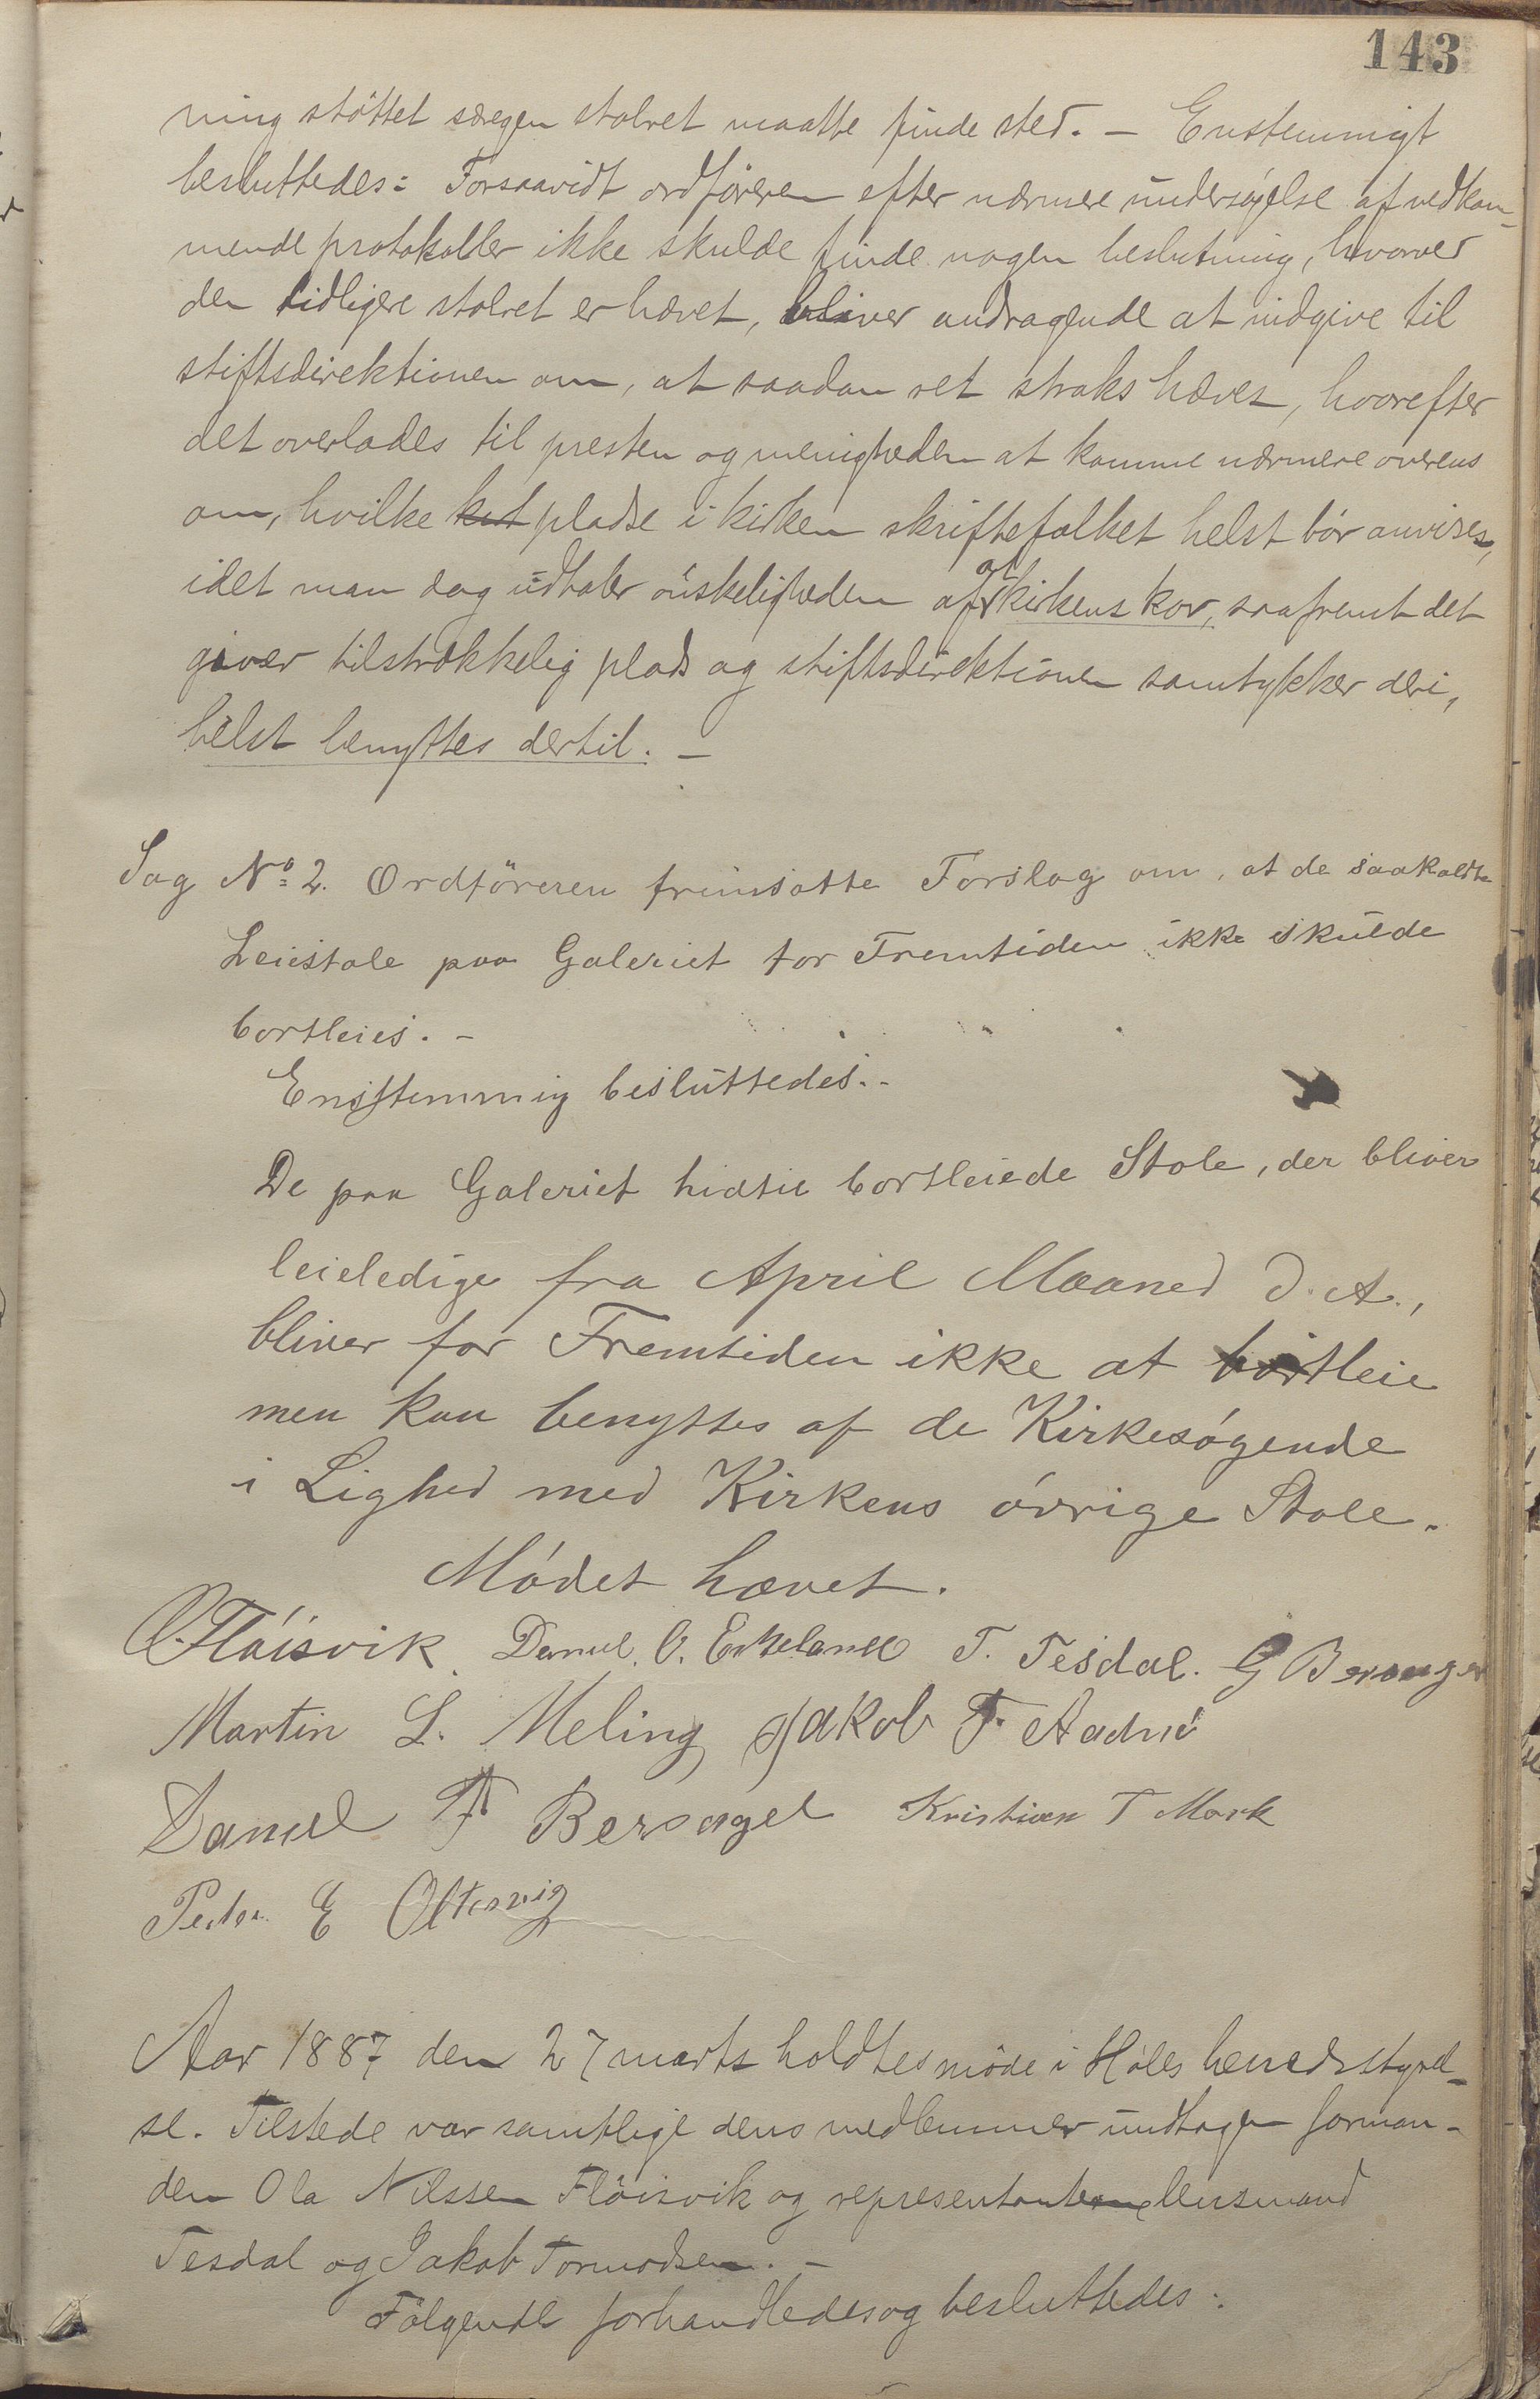 143
ning støttet særegen stolret maatte finde sted. — Enstemmigt
besluttedes: Forsaavidt ordføreren efter nærmere undersøgelse af vedkom-
mende protokoller ikke skulde finde nogen beslutning, hvorved
den tidligere stolret er hævet, bliver andragende at indgive til
stiftsdirektionen om, at saadan ret straks hæves, hvorefter
det overlades til presten og menigheden at komme nærmere overens
om, hvilke pladse i kirken skriftefolket helst bør anvises,
idet man dog udtaler ønskeligheden af at kirkens kor, saafremt det
giver tilstrækkelig plads og stiftsdirektionen samtykker deri,
helst benyttes dertil. —
Sag No 2. Ordføreren fremsatte Forslag om, at de saakaldte
Leiestole paa Galeriet for Fremtiden ikke skulde
bortleies. -
Enstemmig besluttedes. -
De paa Galeriet hidtil bortleiede Stole, der bliver
leieledige fra April Maaned d. A.,
bliver for Fremtiden ikke at bortleie
men kan benyttes af de Kirkesøgende
i Lighed med Kirkens øvrige Stole.
Mødet hævet.
O. Fløisvik. Daniel O. Eskeland T. Tesdal. G Bersagel
Martin L. Meling Jakob T. Aadnø
Daniel T Bersagel Kristian T Mork
Peder E Oltesvig
Aar 1887 den 27 marts holdtes møde i Høles herredsstyrel-
se. Tilstede var samtlige dens medlemmer undtagen forman-
den Ola Nilssen Fløisvik og representanterne lensmand
Tesdal og Jakob Tormodsen. —
Følgende forhandledes og besluttedes: